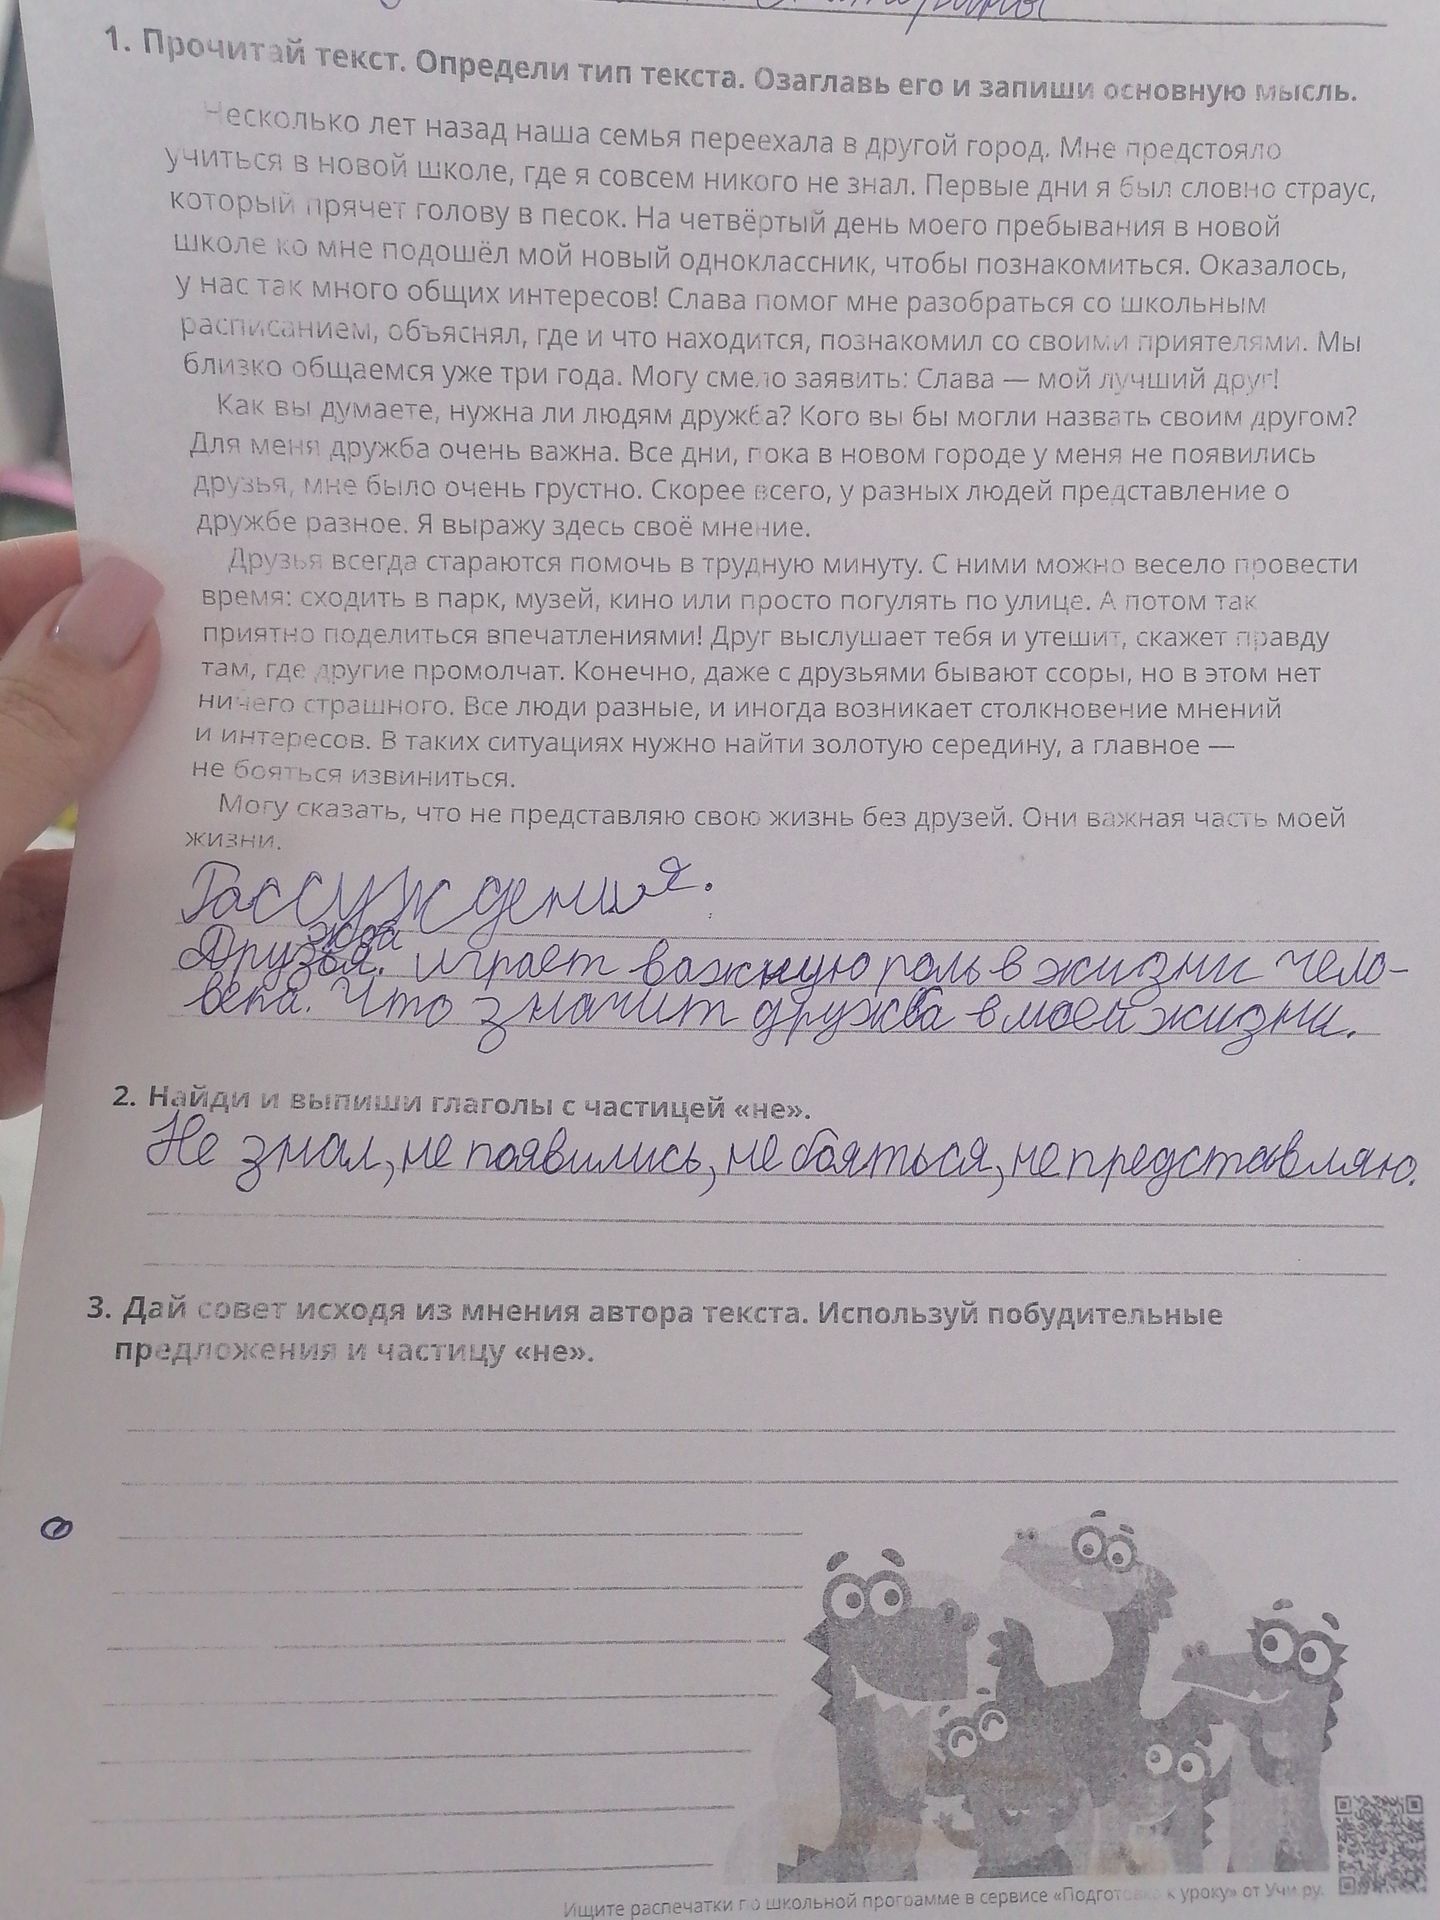 1. Прочитай текст. Определи тип текста. Озаглавь его и запиши основную мысль.
Несколько лет назад наша семья переехала в другой город. Мне предстояло
учиться в новой школе, где я совсем никого не знал. Первые дни я был словно страус,
который прячет голову в песок. На четвёртый день моего пребывания в новой
школе ко мне подошёл мой новый одноклассник, чтобы познакомиться. Оказалось,
у нас так много общих интересов! Слава помог мне разобраться со школьным
расписанием, объяснял, где и что находится, познакомил со своими приятелями. Мы
близко общаемся уже три года. Могу смело заявить: Слава — мой лучший друг!
Как вы думаете, нужна ли людям дружба? Кого вы бы могли назвать своим другом?
Для меня дружба очень важна. Все дни, пока в новом городе у меня не появились
друзья, мне было очень грустно. Скорее всего, у разных людей представление о
дружбе разное. Я выражу здесь своё мнение.
Друзья всегда стараются помочь в трудную минуту. С ними можно весело провести
время: сходить в парк, музей, кино или просто погулять по улице. А потом так
приятно поделиться впечатлениями! Друг выслушает тебя и утешит, скажет правду
там, где другие промолчат. Конечно, даже с друзьями бывают ссоры, но в этом нет
ничего страшного. Все люди разные, и иногда возникает столкновение мнений
и интересов. В таких ситуациях нужно найти золотую середину, а главное —
не бояться извиниться.
Могу сказать, что не представляю свою жизнь без друзей. Они важная часть моей
жизни.
Рассуждения.
жба
Друзья. играет важную роль в жизни чело-
века. Что значит дружба в моей жизни.
2. Найди и выпиши глаголы с частицей «не».
Не знал, не появились, не бояться, не представляю.
3. Дай совет исходя из мнения автора текста. Используй побудительные
предложения и частицу «не».
Ищите распечатки по школьной программе в сервисе «Подготовка к уроку» от Учи.ру.